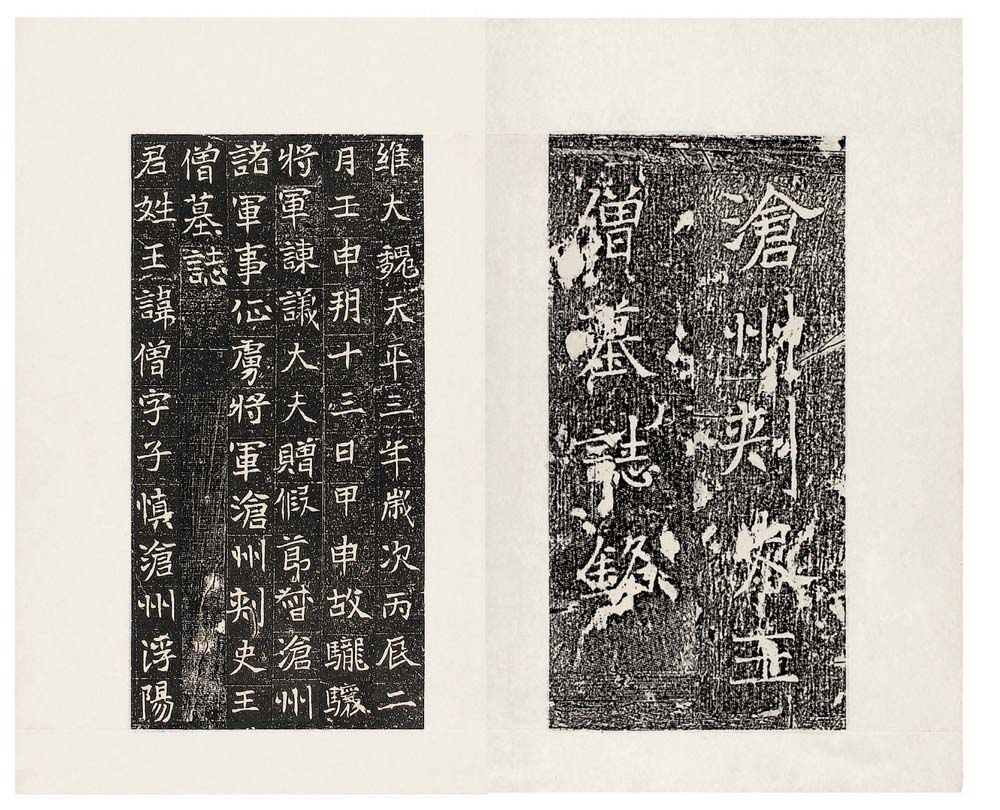 滄州刾史王
僧墓誌銘
維大魏天平三年歲次丙辰二
月壬申朔十三日甲申故驡驤
將軍諫議大夫贈假節督滄州
諸軍事征虜將軍滄州刾史王
僧墓誌
君姓王諱僧字子慎滄州浮陽